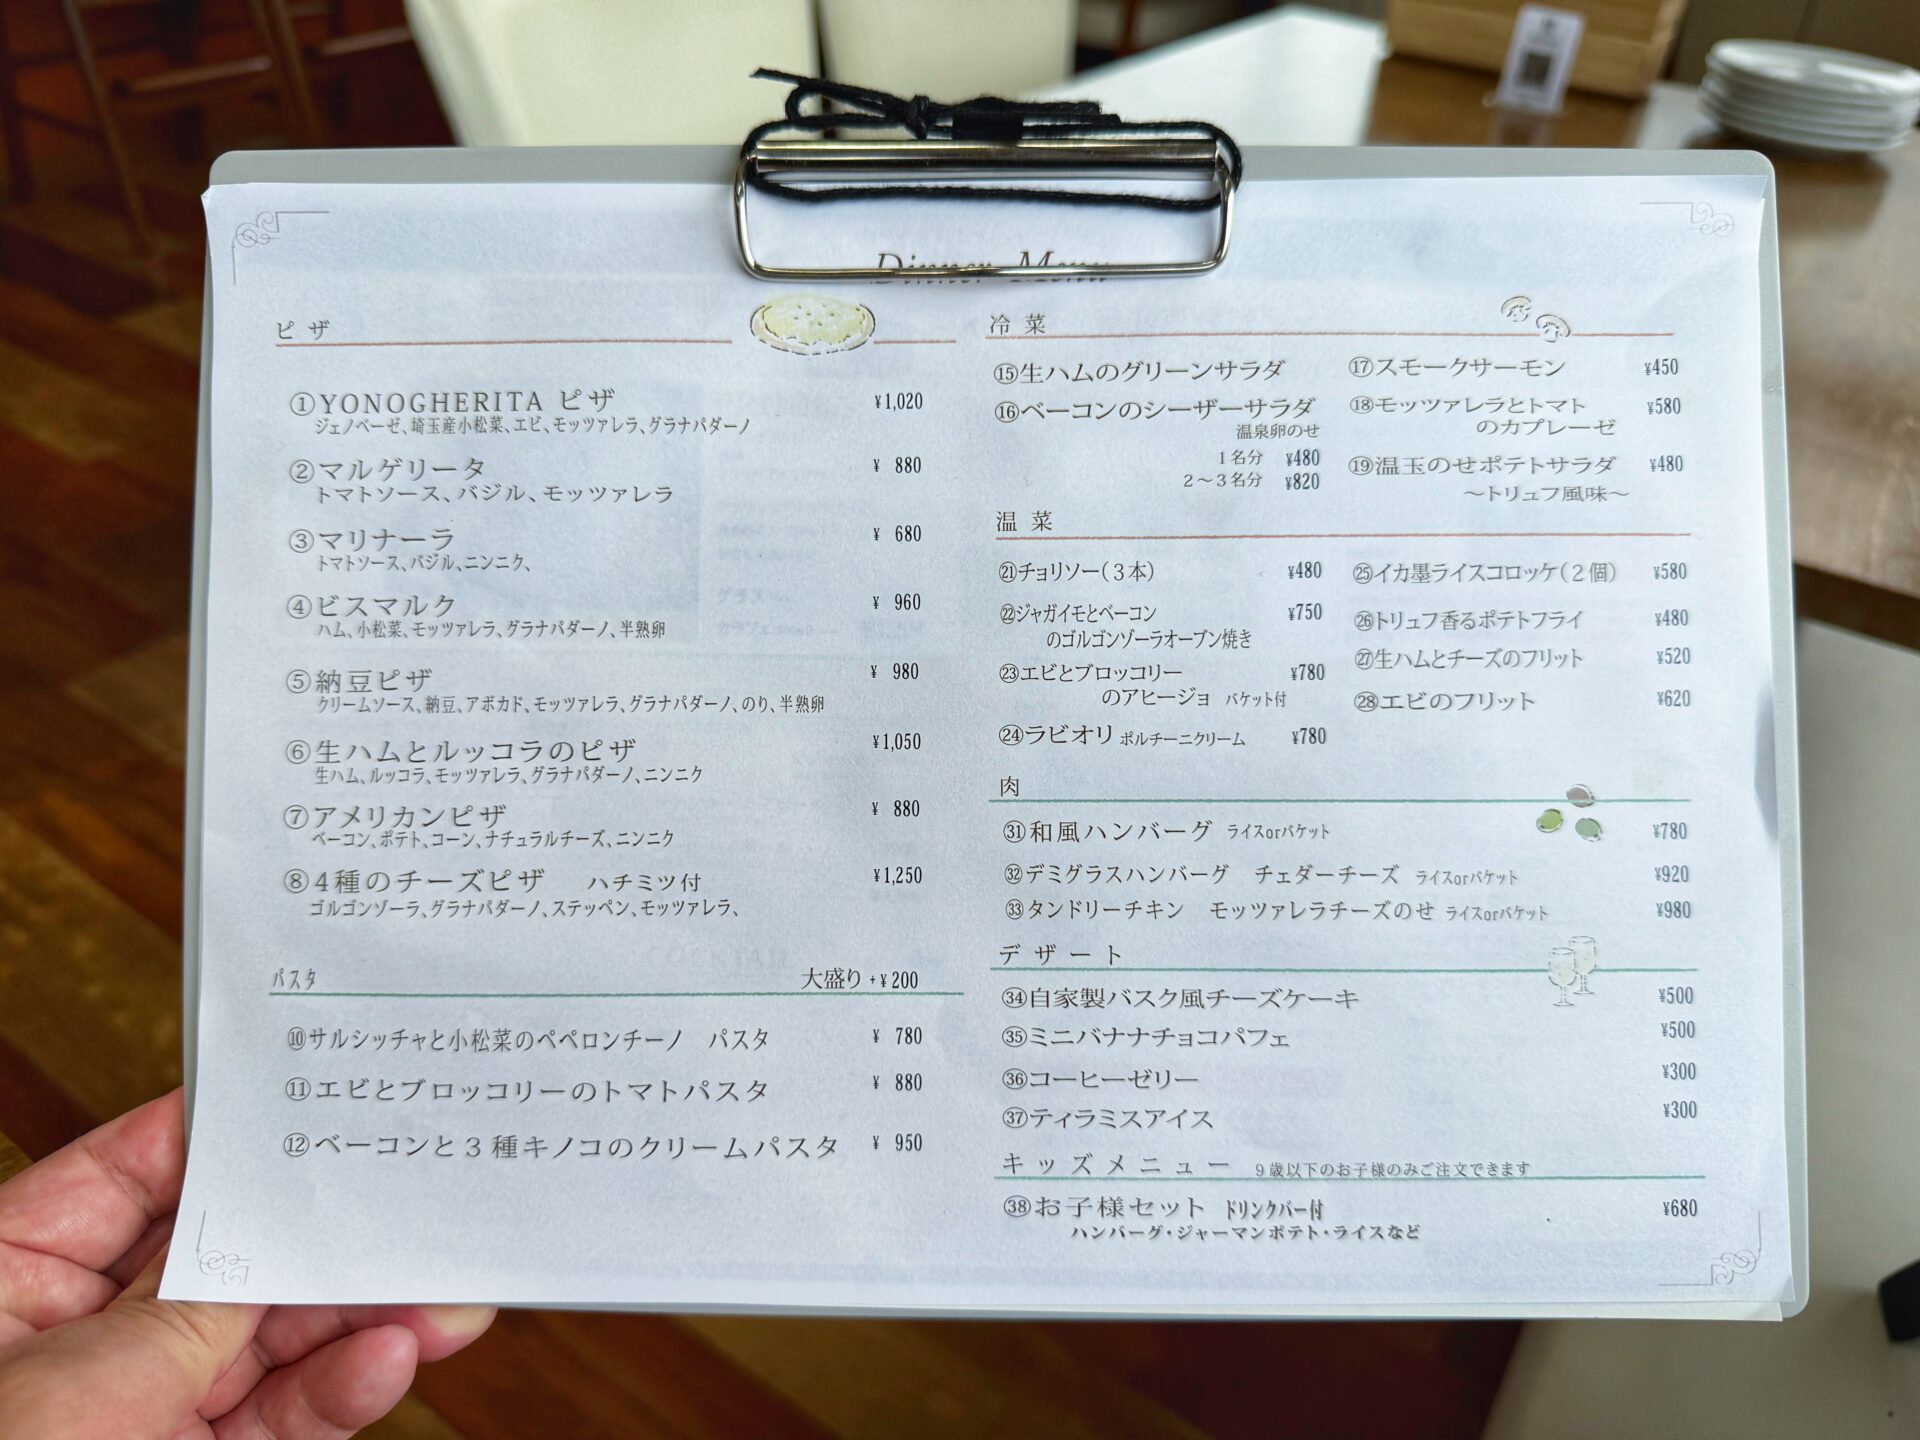 Dinner Menu
ピザ
①YONOGHERITA ピザ ¥1,020
ジェノベーゼ、埼玉産小松菜、エビ、モッツァレラ、グラナパダーノ
②マルゲリータ ¥ 880
トマトソース、バジル、モッツァレラ
③マリナーラ ¥ 680
トマトソース、バジル、ニンニク、
④ビスマルク ¥ 960
ハム、小松菜、モッツァレラ、グラナパダーノ、半熟卵
⑤納豆ピザ ¥ 980
クリームソース、納豆、アボカド、モッツァレラ、グラナパダーノ、のり、半熟卵
⑥生ハムとルッコラのピザ ¥1,050
生ハム、ルッコラ、モッツァレラ、グラナパダーノ、ニンニク
⑦アメリカンピザ ¥ 880
ベーコン、ポテト、コーン、ナチュラルチーズ、ニンニク
⑧4種のチーズピザ ハチミツ付 ¥1,250
ゴルゴンゾーラ、グラナパダーノ、ステッペン、モッツァレラ、
パスタ 大盛り +¥ 200
⑩サルシッチャと小松菜のペペロンチーノ パスタ ¥ 780
⑪エビとブロッコリーのトマトパスタ ¥ 880
⑫ベーコンと3種キノコのクリームパスタ ¥ 950
冷菜
⑮生ハムのグリーンサラダ
⑯ベーコンのシーザーサラダ
温泉卵のせ
1名分 ¥480
2～3名分 ¥820
⑰スモークサーモン ¥450
⑱モッツァレラとトマト ¥580
のカプレーゼ
⑲温玉のせポテトサラダ ¥480
～トリュフ風味～
温菜
㉑チョリソー(3本) ¥480
㉒ジャガイモとベーコン ¥750
のゴルゴンゾーラオーブン焼き
㉓エビとブロッコリー ¥780
のアヒージョ バケット付
㉔ラビオリ ポルチーニクリーム ¥780
㉕イカ墨ライスコロッケ(2個) ¥580
㉖トリュフ香るポテトフライ ¥480
㉗生ハムとチーズのフリット ¥520
㉘エビのフリット ¥620
肉
㉛和風ハンバーグ ライスorバケット ¥780
㉜デミグラスハンバーグ チェダーチーズ ライスorバケット ¥920
㉝タンドリーチキン モッツァレラチーズのせ ライスorバケット ¥980
デザート
㉞自家製バスク風チーズケーキ ¥500
㉟ミニバナナチョコパフェ ¥500
㊱コーヒーゼリー ¥300
㊲ティラミスアイス ¥300
キッズメニュー 9歳以下のお子様のみご注文できます
㊳お子様セット ドリンクバー付 ¥680
ハンバーグ・ジャーマンポテト・ライスなど